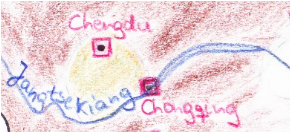 Chengdu
Jangtsekiang
Chongqing